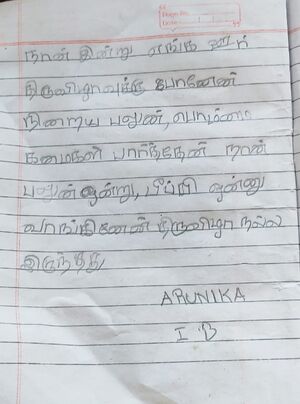 Page No.
Date
நான் இன்று எங்க ஊர்
திருவிழாவுக்கு போனேன்
நினறய பலுன், பொம்மை
கடைகள் பார்த்தேன் நான்
பலுன் ஒன்று, பீப்பி ஒன்னு
வாங்கினேன் திருவிழா நல்ல
இருந்தது
ARUNIKA
I B